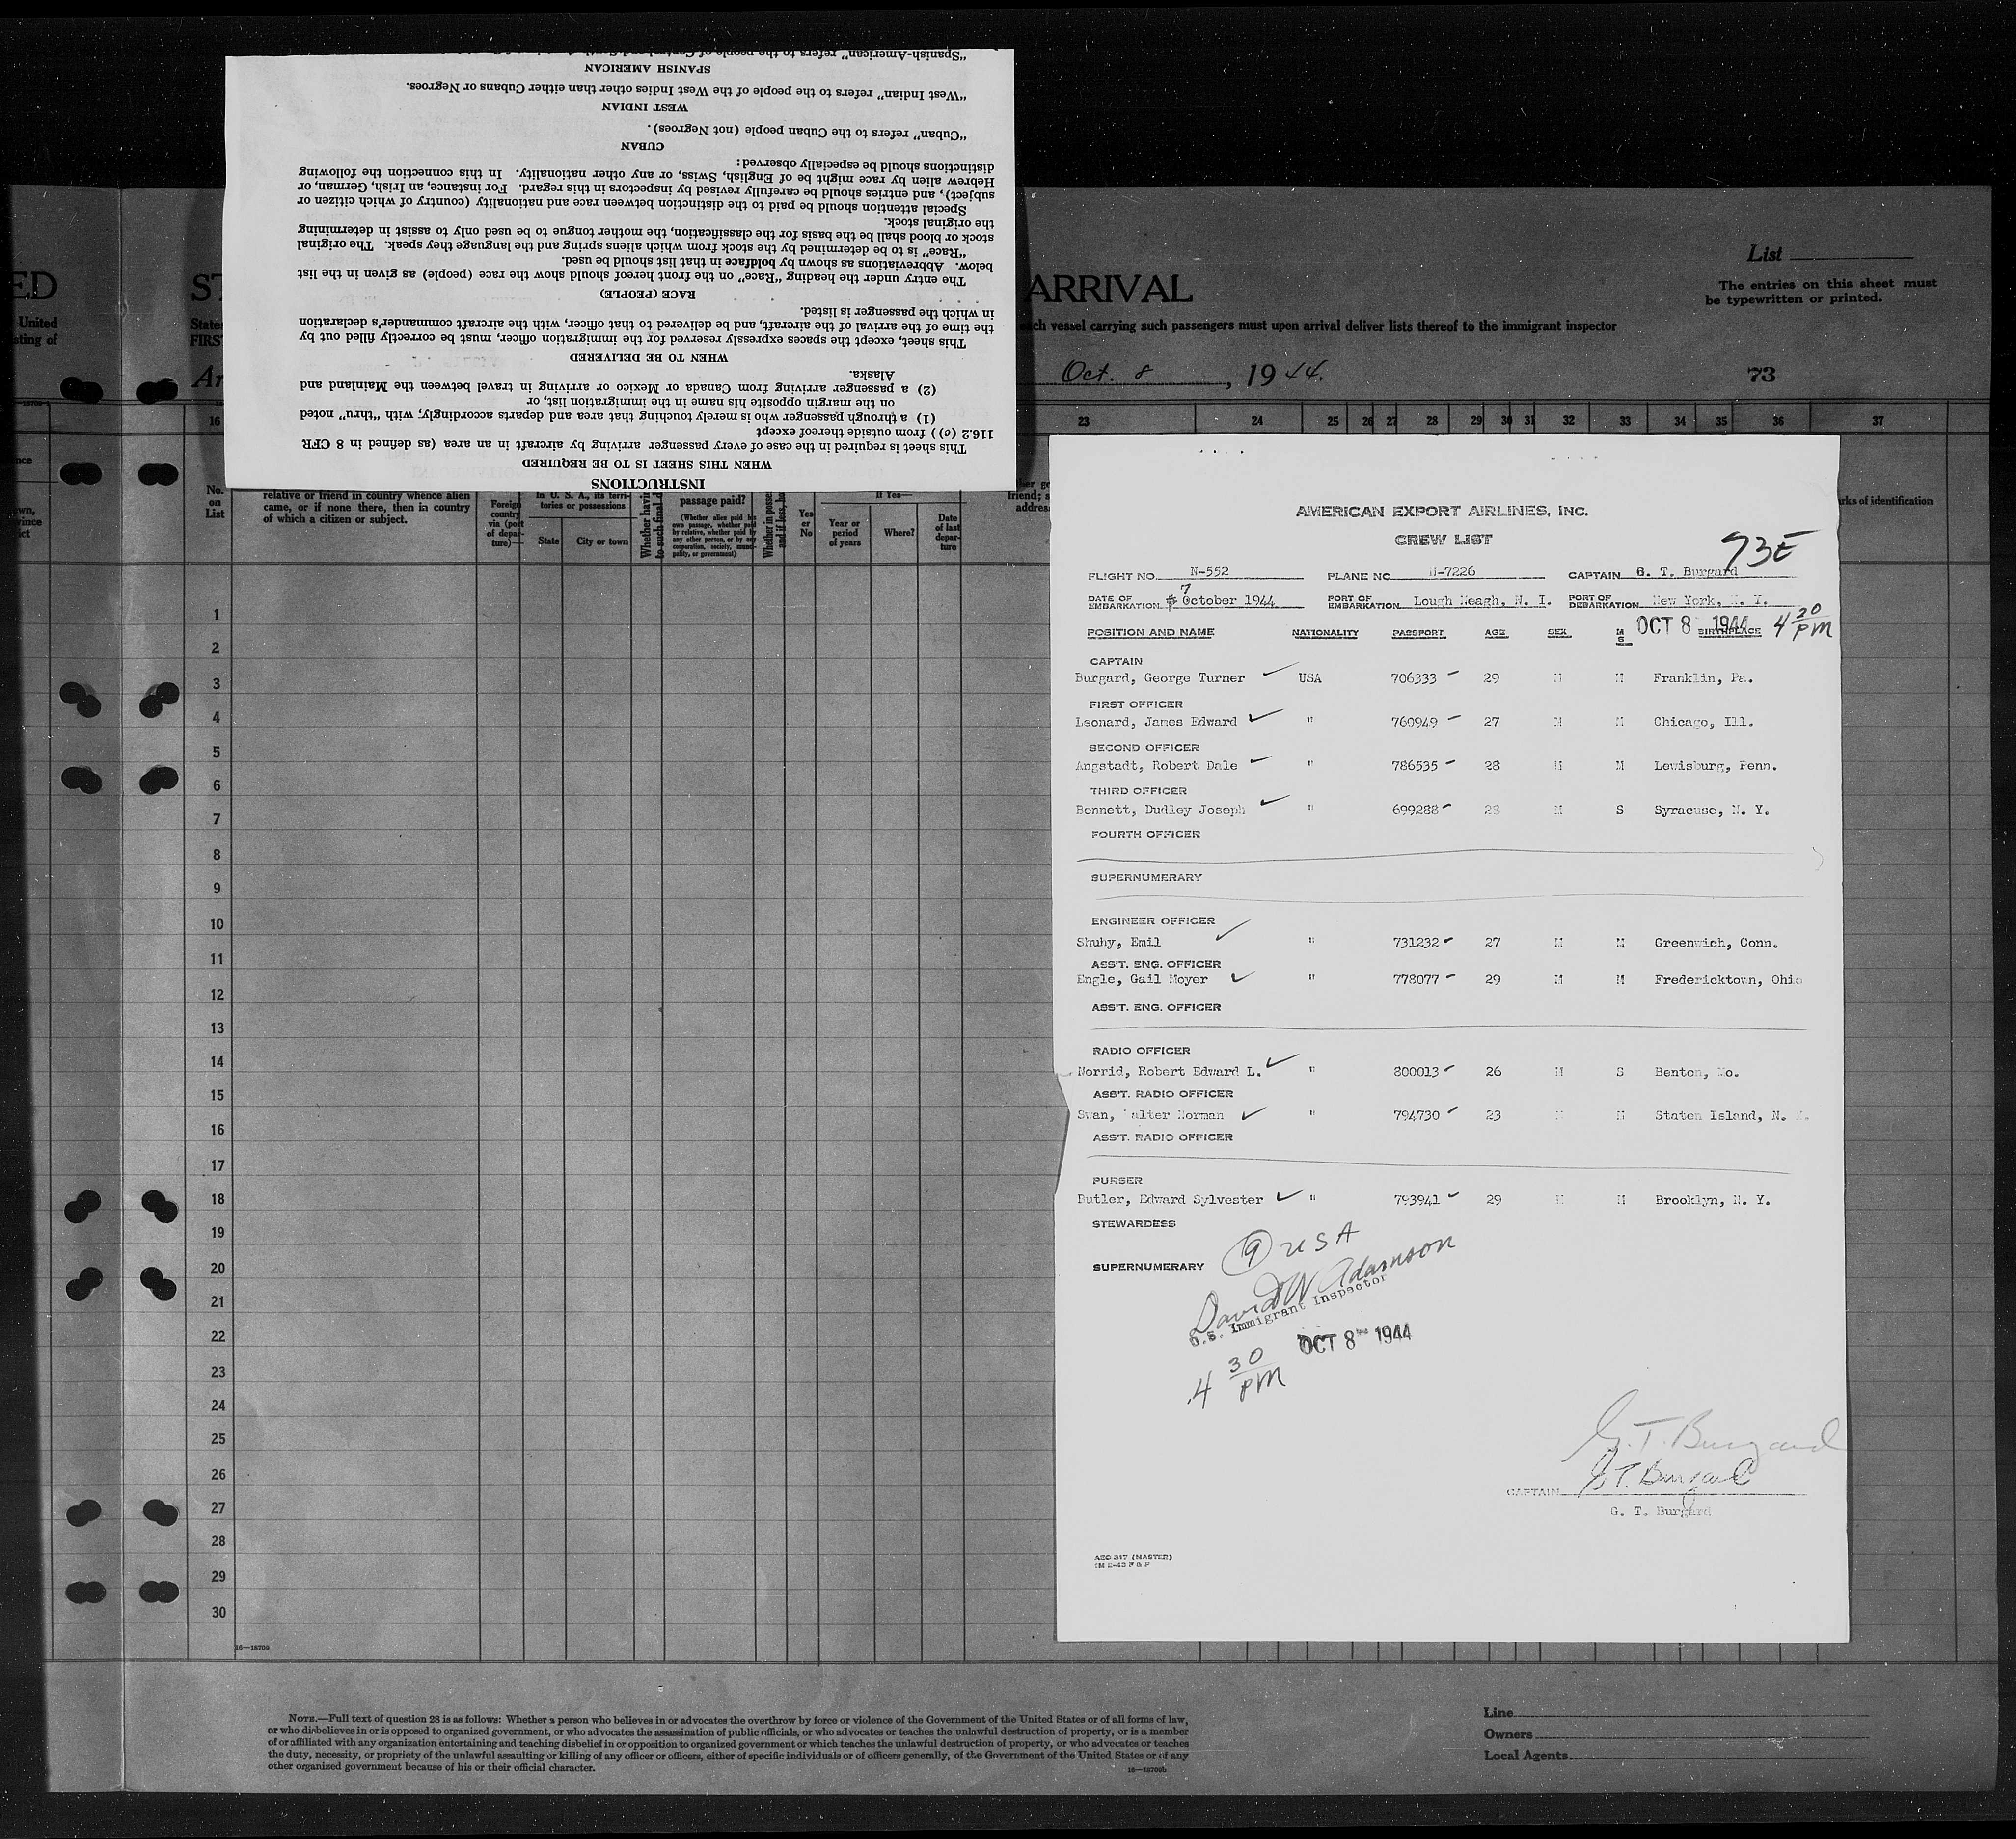 INSTRUCTIONS
WHEN THIS SHEET IS TO BE REQUIRED
This sheet is required in the case of every passenger arriving by aircraft in an area (as defined in 8 CFR
116.2 (c)) from outside thereof except
(1) a through passenger who is merely touching that area and departs accordingly, with "thru" noted
on the margin opposite his name in the immigration list, or
(2) a passenger arriving from Canada or Mexico or arriving in travel between the Mainland and
Alaska.
WHEN TO BE DELIVERED
This sheet, except the spaces expressly reserved for the immigration officer, must be correctly filled out by
the time of the arrival of the aircraft, and be delivered to that officer, with the aircraft commander's declaration
in which the passenger is listed.
RACE (PEOPLE)
The entry under the heading "Race" on the front hereof should show the race (people) as given in the list
below. Abbreviations as shown by boldface in that list should be used.
"Race" is to be determined by the stock from which aliens spring and the language they speak. The original
stock or blood shall be the basis for the classification, the mother tongue to be used only to assist in determining
the original stock.
Special attention should be paid to the distinction between race and nationality (country of which citizen or
subject), and entries should be carefully revised by inspectors in this regard. For instance, an Irish, German, or
Hebrew alien by race might be of English, Swiss, or any other nationality. In this connection the following
distinctions should be especially observed:
CUBAN
"Cuban" refers to the Cuban people (not Negroes).
WEST INDIAN
"West Indian" refers to the people of the West Indies other than either Cubans or Negroes.
SPANISH AMERICAN
"Spanish-American" refers to the people of
List
The entries on this sheet must
be typewritten or printed.
ED
ST
ARRIVAL
United
State
ch vessel carrying such passengers must upon arrival deliver lists thereof to the immigrant inspector
FIRS
Oct. 8, 1944.
73
16 23 24 25 26 27 28 29 30 31 32 33 34 35 36 37
No. on List
relative or friend in country whence alien
came, or if none there, then in country
of which a citizen or subject.
Foreign country via (port of depar-ture)—
In U. S. A., its terri-
tories or possessions
State
City or town
passage paid?
(Whether alien paid his own passage, whether paid by relative, whether paid by any other person, or by any corporation, society, muni-cipality, or government)
Yes or No
If Yes—
Year or period of years
Where?
Date of last depar-ture
rks of identification
AMERICAN EXPORT AIRLINES, INC.
CREW LIST
73E
FLIGHT NO. N-552 PLANE NO. N-7226 CAPTAIN G. T. Burgard
DATE OF EMBARKATION 7 October 1944 PORT OF EMBARKATION Lough Neagh, N. I. PORT OF DEBARKATION New York, N. Y.
OCT 8 1944 4 30 PM
POSITION AND NAME NATIONALITY PASSPORT AGE SEX M S BIRTHPLACE
CAPTAIN
Burgard, George Turner USA 706333 29 M M Franklin, Pa.
FIRST OFFICER
Leonard, James Edward " 760949 27 M M Chicago, Ill.
SECOND OFFICER
Angstadt, Robert Dale " 786535 28 M M Lewisburg, Penn.
THIRD OFFICER
Bennett, Dudley Joseph " 699288 28 M S Syracuse, N. Y.
FOURTH OFFICER
SUPERNUMERARY
ENGINEER OFFICER
Shuhy, Emil " 731232 27 M M Greenwich, Conn.
ASS'T. ENG. OFFICER
Engle, Gail Moyer " 778077 29 M M Fredericktown, Ohio
ASS'T. ENG. OFFICER
RADIO OFFICER
Norrid, Robert Edward L. " 800013 26 M S Benton, Mo.
ASS'T. RADIO OFFICER
Swan, Walter Norman " 794730 23 M M Staten Island, N. Y.
ASS'T. RADIO OFFICER
PURSER
Butler, Edward Sylvester " 793941 29 M M Brooklyn, N. Y.
STEWARDESS
SUPERNUMERARY
9 USA
David W Adamson
U.S. Immigrant Inspector
OCT 8 1944
4 30 PM
G. T. Burgard
CAPTAIN G T. Burgard
G. T. Burgard
AEO 317 (MASTER)
1
2
3
4
5
6
7
8
9
10
11
12
13
14
15
16
17
18
19
20
21
22
23
24
25
26
27
28
29
30
16—18709
NOTE.—Full text of question 28 is as follows: Whether a person who believes in or advocates the overthrow by force or violence of the Government of the United States or of all forms of law,
or who disbelieves in or is opposed to organized government, or who advocates the assassination of public officials, or who advocates or teaches the unlawful destruction of property, or is a member
of or affiliated with any organization entertaining and teaching disbelief in or opposition to organized government or which teaches the unlawful destruction of property, or who advocates or teaches
the duty, necessity, or propriety of the unlawful assaulting or killing of any officer or officers, either of specific individuals or of officers generally, of the Government of the United States or of any
other organized government because of his or their official character.
16—18709b
Line
Owners
Local Agents